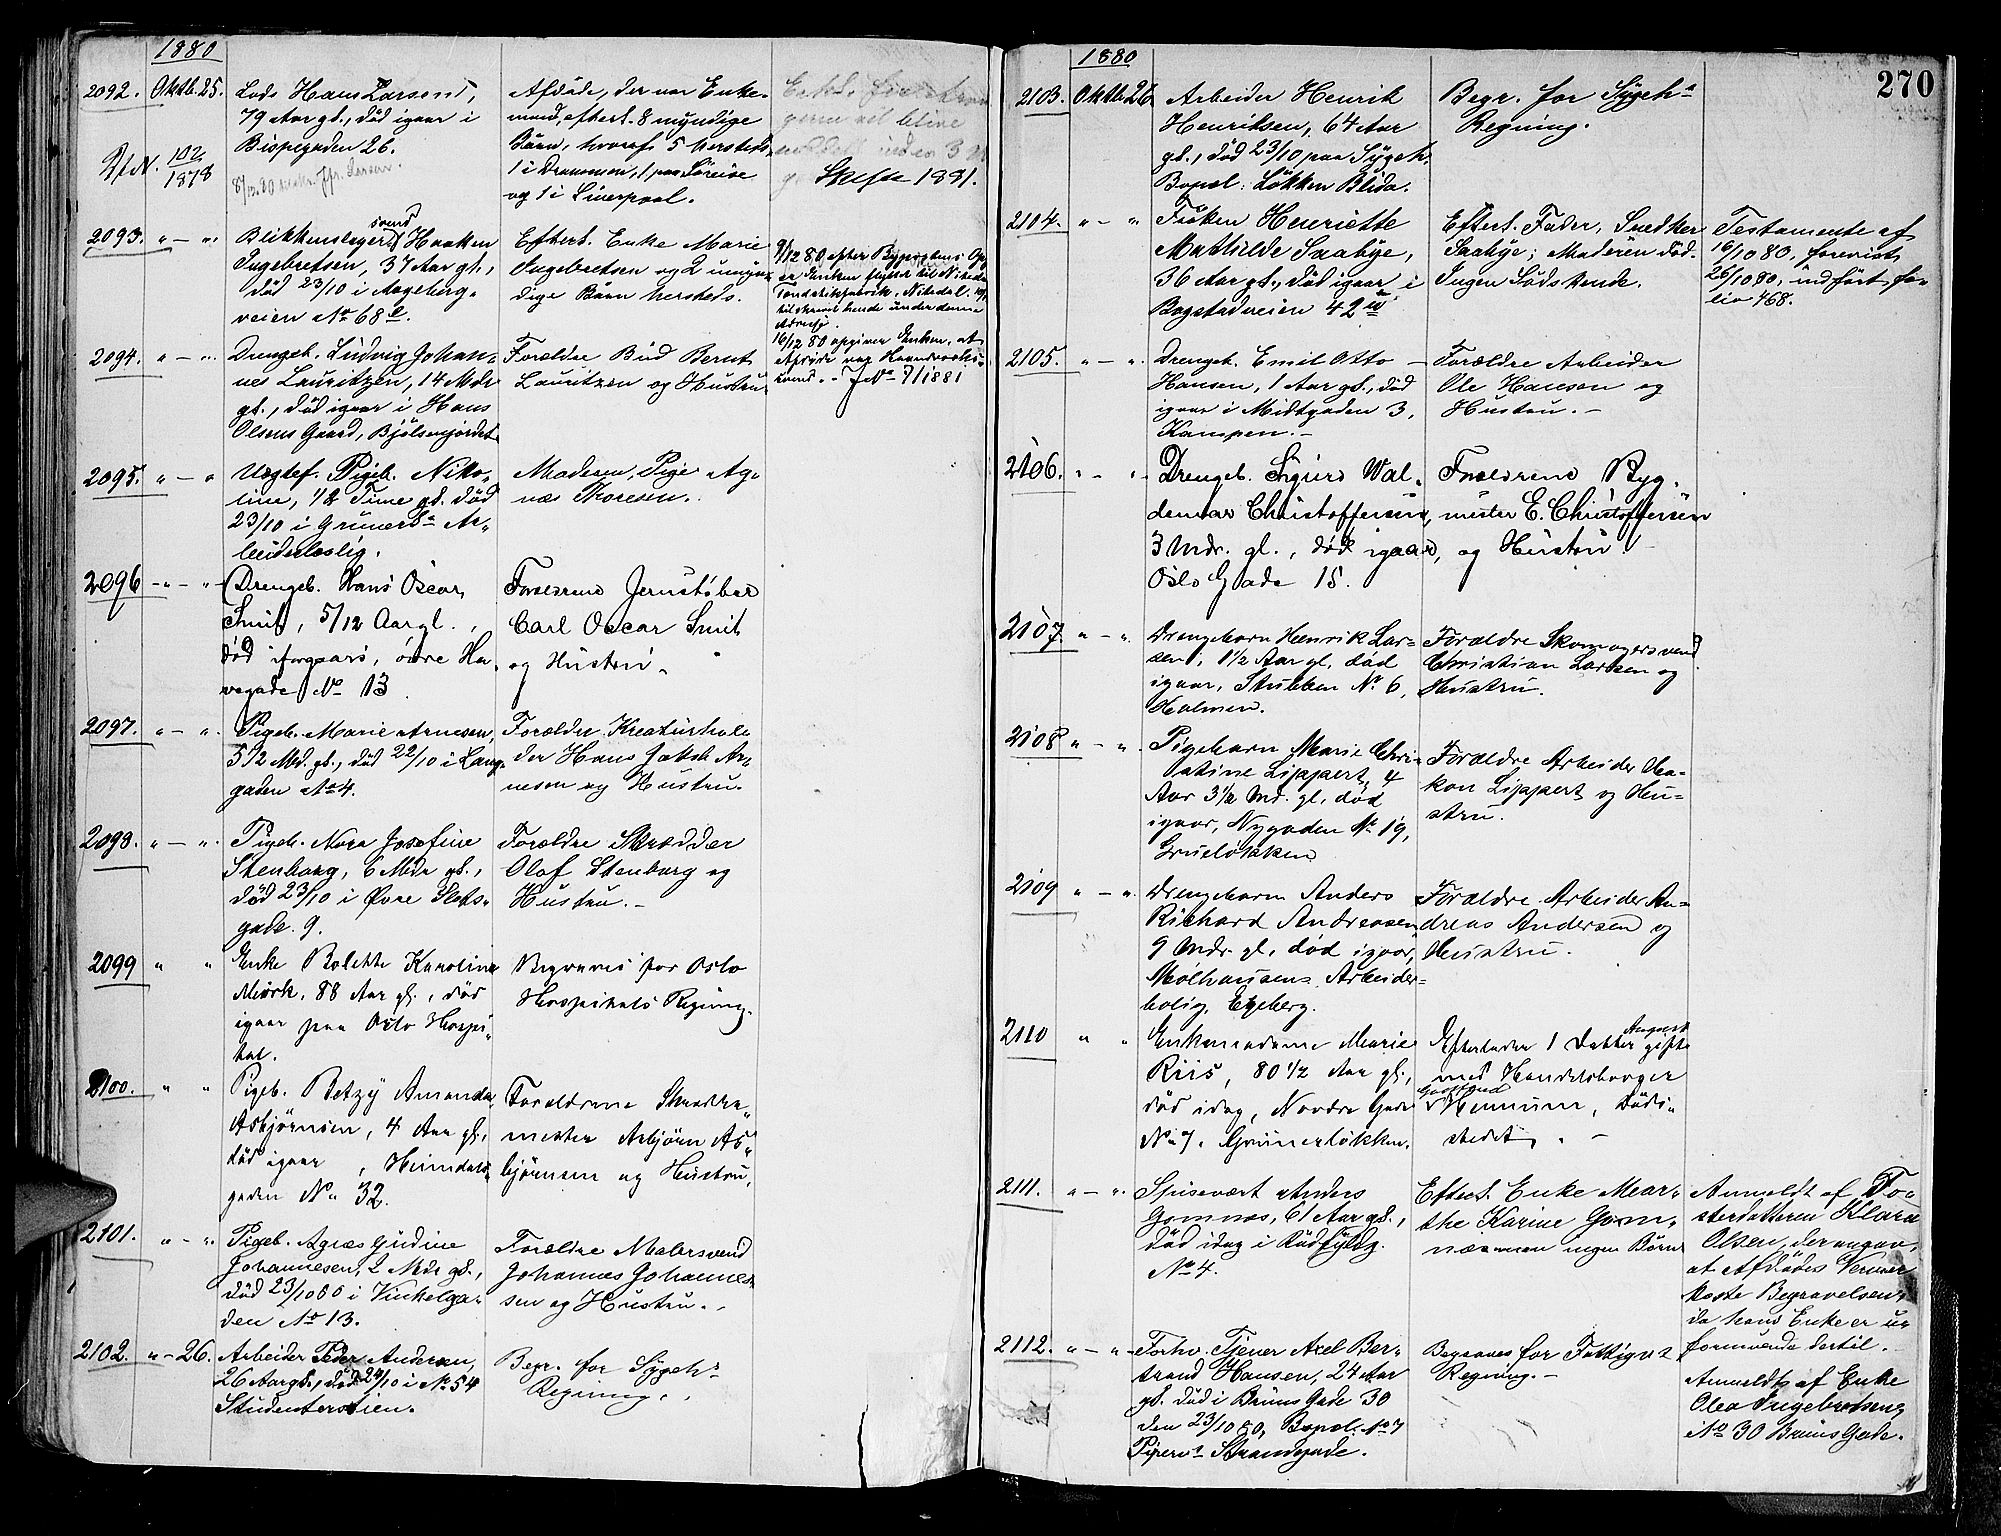 1880
2092. Oktb. 25. Lods Hans Larsen,
79 Aar gl., död igaar i
Bispegaden 26.
102/1878
Afdøde, der var Enke-
mand, efterl. 8 myndige
Börn, hvoraf 5 hersteds,
1 i Drammen, 1 paa Söreise
og 1 i Liverpool.
Skifte 1881.
2093. " — " Blikkenslagersvend Haaken
Ingebretsen, 37 Aar gl.,
död 23/10 i Aageberg-
veien No 68 b.
Efterl. Enke Marie
Ingebretsen og 2 umyn-
dige Börn hersteds.
9/12 80 efter
er Enken flyttet til Nitedals
Tændstikfabrik, Nitedal.
tilskrevet hende under denne
Adresse.
16/12 80 opgiver Enken, at
Afdøde var Haandværks-
svend. - J No 7/1881
2094. " — " Drengeb. Ludvig Johan-
nes Lauritzen, 14 Mdr
gl., död igaar i Hans
Olsens Gaard, Bjölsenjordet
Forældre Bud Bernt
Lauritzen og Hustru.
2095. " — " Uægtef. Pigeb. Niko-
line, 1/2 Time gl. död
23/10 i Grünerl. Ar-
beiderbolig.
Moderen, Pige Ag-
næs Thoresen.
2096 — " — " Drengeb. Hans Oscar
Smit, 5/12 Aar gl.,
död iforgaars, övre Ha-
vegade No 13.
Forældrene Jernstöber
Carl Oscar Smit
og Hustru.
2097. " — " Pigeb. Marie Arnesen,
5 1/2 Md. gl., död 22/10 i Lang-
gaden No 4.
Forældre Kreaturhand-
der Hans Jakob Ar-
nesen og Hustru.
2098. " — " Pigeb. Nora Josefine
Stenborg, 6 Mdr gl.,
död 23/10 i Øvre Slots-
gade. 9.
Forældre Skrædder
Olaf Stenborg og
Hustru. —
2099 " " Enke Bolette Karoline
Mörk, 88 Aar gl., död
igaar paa Oslo Hospi-
tal.
Begraves for Oslo
Hospitals Regning.
2100. " " Pigeb. Betzy Amanda
Asbjörnsen, 4 Aar gl.,
död igaar, Heimdals-
gaden No 32.
Forældrene Skrædder-
mester Asbjörn As-
björnsen og Hustru.
2101. " — " Pigeb. Agnes Gudine
Johannesen, 2 Mdr gl.,
död 23/10 80 i Vinkelga-
den No 13.
Forældre Malersvend
Johannes Johannes-
sen og Hustru.
2102. " — 26. Arbeider Peder Andersen,
26 Aar gl., död 24/10 i No 54
Studenterstien.
Begr. for Sygeh.
Regning.
270
1880
2103. Oktbr 26 Arbeider Henrik
Henriksen, 64 Aar
gl., död 23/10 paa Sygeh.
Bopæl: Lökken Blida.
Begr. for Sygeh.
Regning.
2104. " — " Fröken Henriette
Mathilde Saabye,
36 Aar gl., död igaar i
Bogstadveien 42 b
Efterl. Fader, Snedker
Saabye; Moderen död.
Ingen Södskende.
Testamente af
16/10 80, forevist
26/10 80, indfört fo-
lio 468.
2105. " — " Drengeb. Emil Otto
Hansen, 1 Aar gl., död
igaar i Midtgaden 3,
Kampen. —
Forældre Arbeider
Ole Hansen og
Hustru. —
2106. " — " Drengeb. Sigurd Wal-
demar Christoffersen,
3 Mdr. gl., död igaar,
Oslo Gade 15.
Forældrene Byg-
mester E. Christoffersen
og Hustru. —
2107. " — " Drengebarn Henrik Lar-
sen, 1 1/2 Aar gl., död
igaar, Stubben No 6,
Holmen.
Forældre Skomagersvend
Christian Larsen og
Hustru.
2108 " — " Pigebarn Marie Chri-
stine Lippert, 4
Aar 3 1/2 Md. gl., död
igaar, Nygaden No 19,
Gruelökken
Forældre Arbeider Ha-
kon Lippert og Hu-
stru.
2109 " — " Drengebarn Anders
Richard Andreasen,
9 Mdr. gl., död igaar,
Mølhausens Arbeider-
bolig, Egeberg.
Forældre Arbeider An-
dreas Andersen og
Hustru.
2110 " " Enkemadame Marie
Riis, 80 1/2 Aar gl.,
död idag, Nordre Gade
No 7. Grünerlökken.
Efterlader 1 Datter gift
med Handelsborger
död-
stedet. —
2111. " — " Spisevært Anders
Gomnæs, 61 Aar gl.,
död idag i Rådhusg.
No 4.
Efterl. Enke Mar-
the Karine Gom-
næs men ingen Börn
Anmeldt af Sö-
sterdatteren Klara
Olsen, der angav,
at Afdødes Venner
koste Begravelsen,
da hans Enke er u-
formuende dertil.
2112. " — " Forhv. Tjener Axel Ber-
trand Hansen, 24 Aar
gl. död i Bruns Gade 30
den 23/10 80, Bopæl: No 7
Piperv. Strandgade.
Begraves for Fattigv.
Regning. —
Anmeldt af Enke
Olea Ingebretsen,
No 30 Bruns Gade.